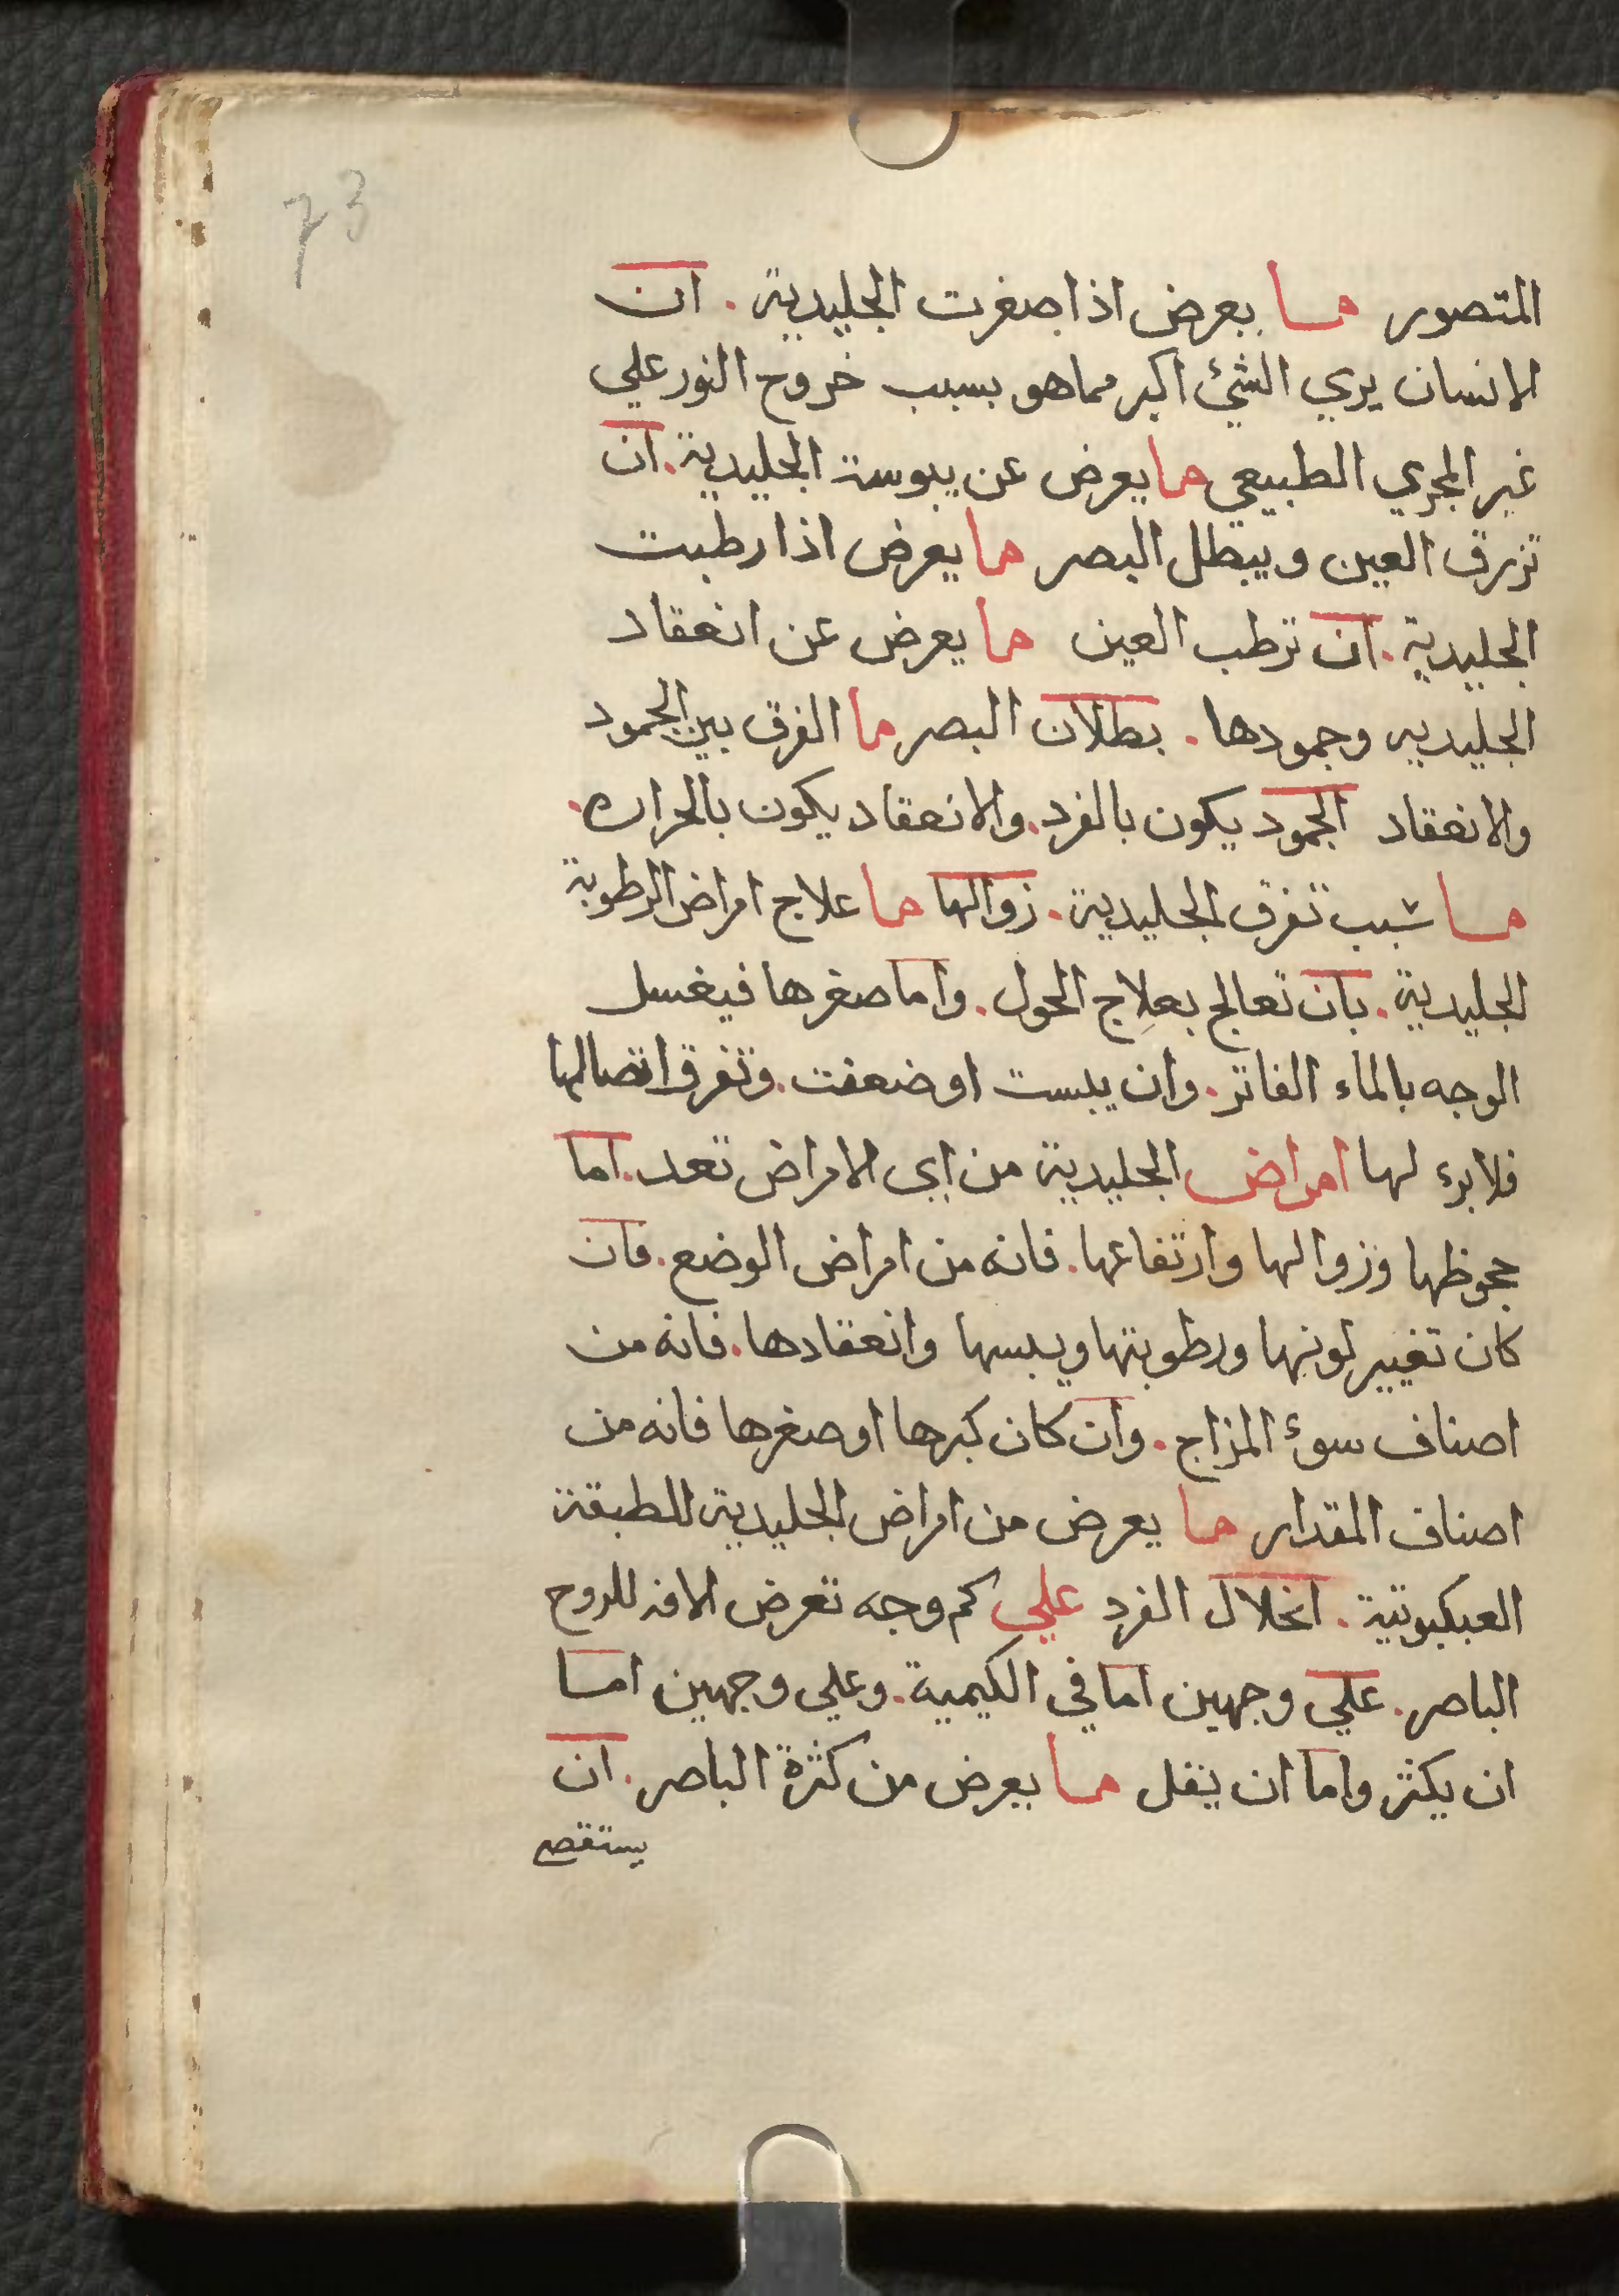 73
المتصور ما بعرض اذا صغرت الجليدية . ان
الانسان يري الشئ اكبر مماهو بسبب خروج النور علي
غير المجري الطبيعي ما يعرض عن يبوسة الجليدية . ان
تزرق العين ويبطل البصر ما يعرض اذا رطبت
الجليدية . ان ترطب العين ما يعرض عن انعقاد
الجليديه وجمودها . بطلان البصر ما الفرق بين الجمود
والانعقاد الجمود يكون بالفرد . والانعقاد يكون بالحراره .
ما سبب تفرق الجليدية . زوالها ما علاج امراض الرطوبة
الجليدية . بان تعالج بعلاج الحول . واما صغرها فيغسل
الوجه بالماء الفاتر . وان يبست او ضعفت . وتفرق اتصالها
فلا برء لها امراض الجليدية من اي الامراض تعد . اما
جحوظها وزوالها وارتفاعها . فانه من امراض الوضع . فان
كان تغيير لونها ورطوبتها ويبسها وانعقادها . فانه من
اصناف سوئ المزاج . وان كان كبرها او صغرها فانه من
اصناف المقدار ما يعرض من امراض الجليدية للطبقة
العبكبوتية . انحلال الفرد علي كم وجه تعرض الافه للروح
الباصر . علي وجهين اما في الكيمية . وعلي وجهين اما
ان يكثر واما ان يقل ما يعرض من كثرة الباصر . ان
يستقصي